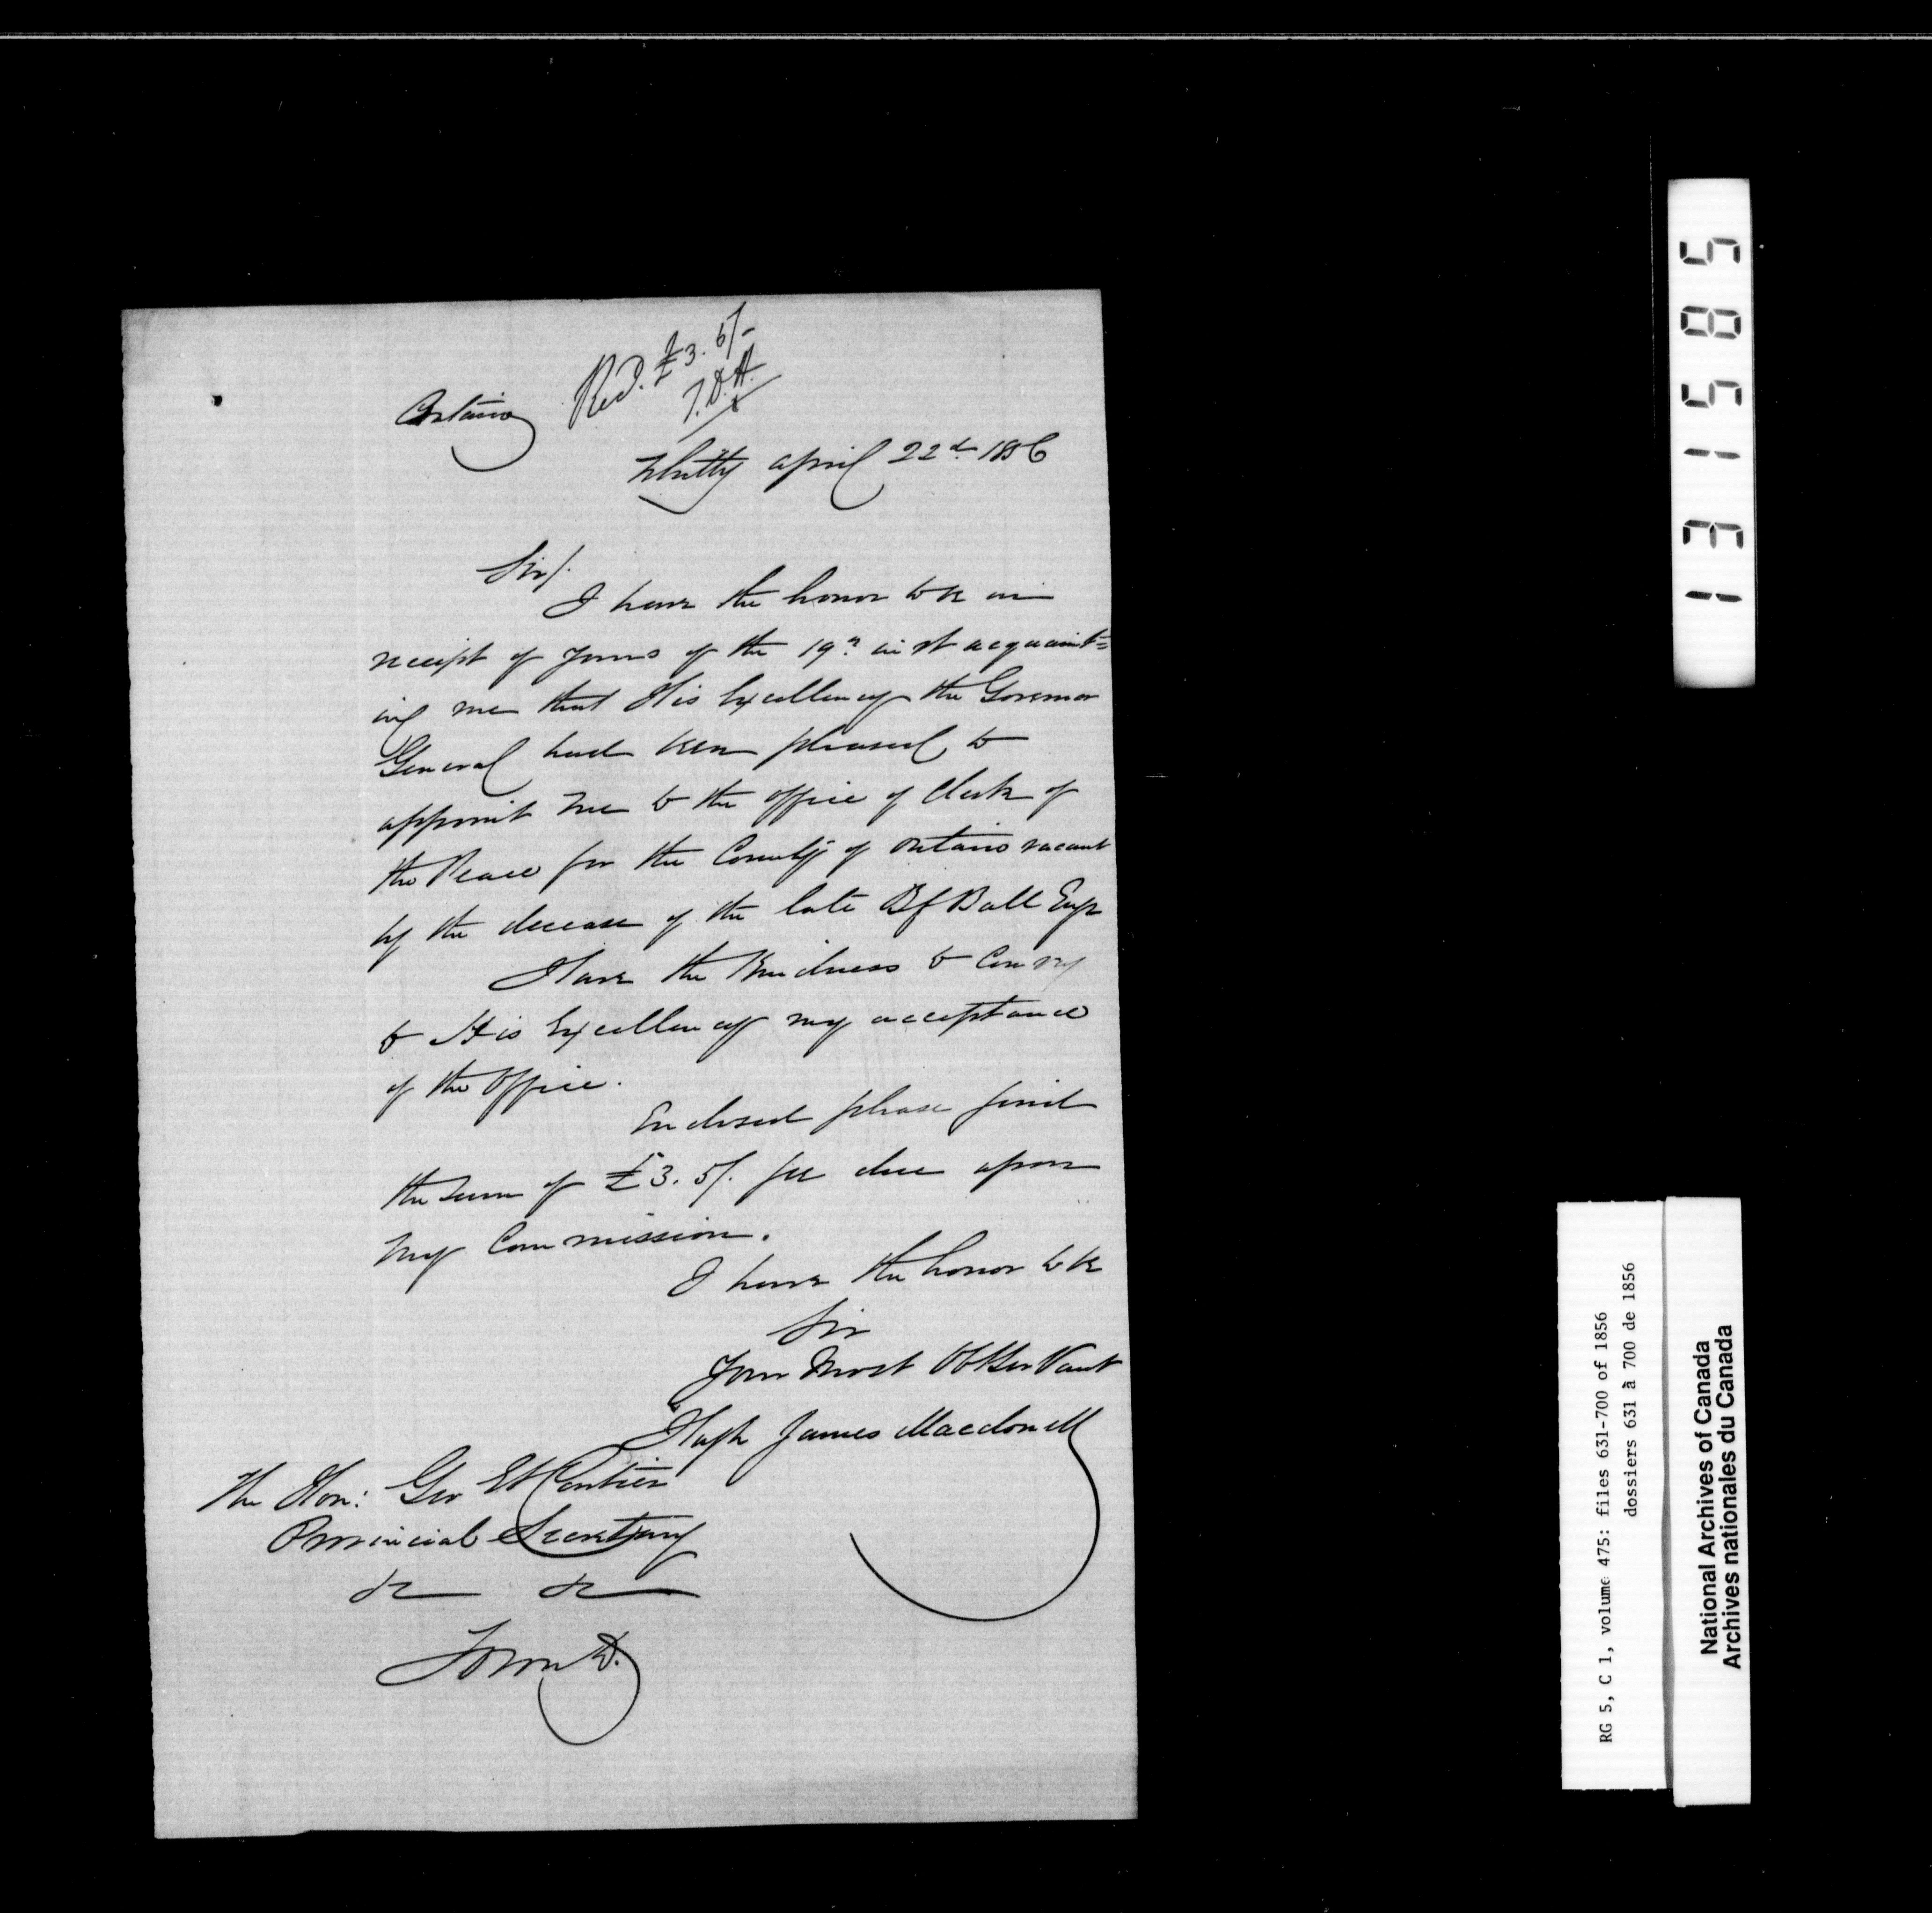 Recd. £3. 5/-
T.D.H.
Ontario
Whitby april 22d. 1856
Sir/.
I have the honor to be in
receipt of yours of the 19th inst acquaint=
ing me that His Excellency the Governor
General had been pleased to
appoint me to the office of Clerk of
the Peace for the County of Ontario vacant
by the decease of the late Ball Esqr
Have the Kindness to Convey
to His Excellency my acceptance
of the Office.
Enclosed please find
the sum of £3. 5/. fee due upon
my Commission.
I have the honor to be
Sir
Your Most Ob Servant
Hugh James Macdonell
The Hon: Geo Et Cartier
Provincial Secretary
&c &c
Toronto.
131585
RG 5, C 1, volume 475: files 631-700 of 1856
dossiers 631 à 700 de 1856
National Archives of Canada
Archives nationales du Canada